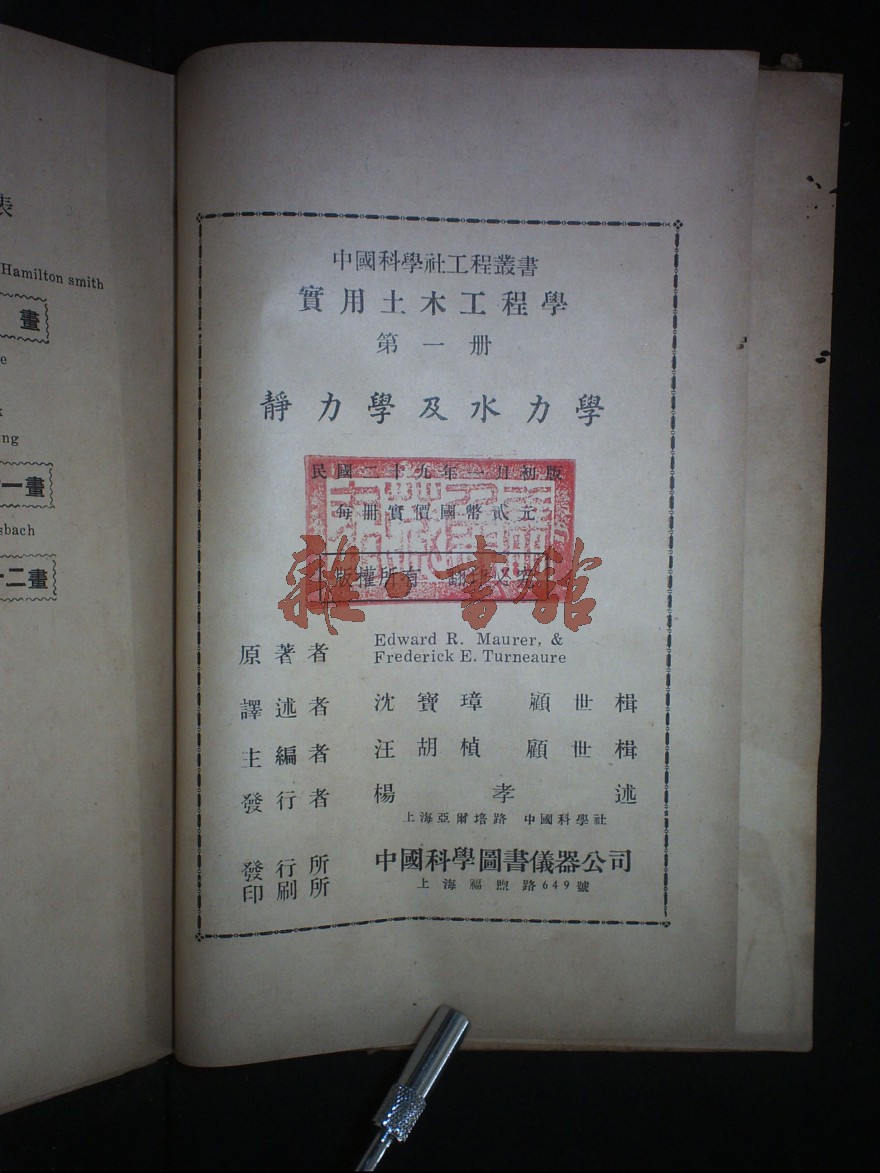 表
Hamilton smith
畫
e
k
ng
一畫
sbach
十二畫
中國科學社工程叢書
實用土木工程學
第一册
靜力學及水力學
民國二十九年一月初版
每冊實價國幣貳元
版權所有 翻印必究
雜·書館
原著者 Edward R. Maurer, &
Frederick E. Turneaure
譯述者 沈寶璋 顧世楫
主編者 汪胡楨 顧世楫
發行者 楊孝述
上海亞爾培路 中國科學社
發行所
印刷所
中國科學圖書儀器公司
上海福煦路649號